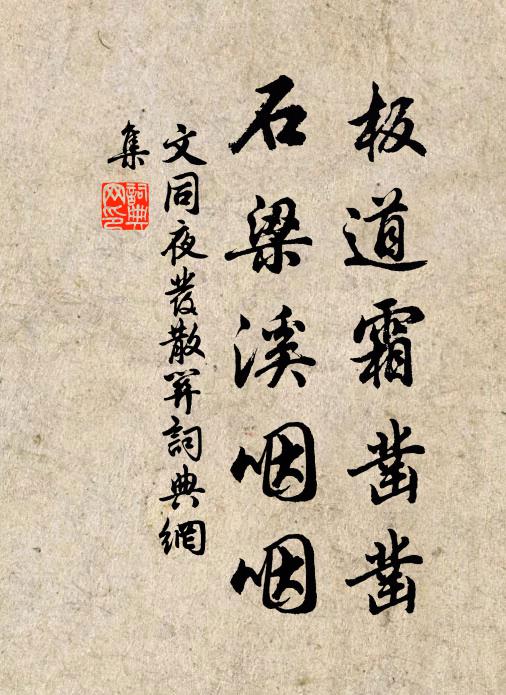 板道霜凿凿
石梁溪咽咽
文同夜发散关詞典網
集
詞典網印